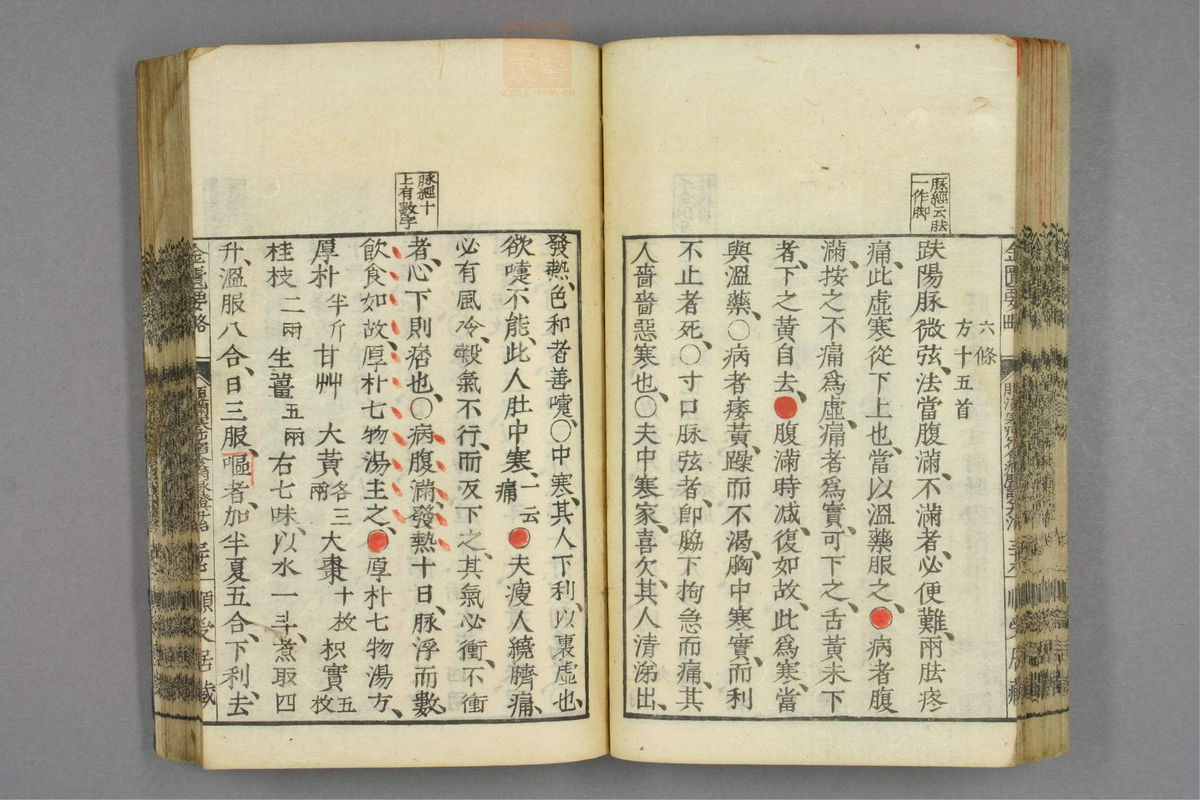 脉經云胠
一作脚
六條
方十五首
趺陽脉微弦、法當腹滿、不滿者、必便難、兩胠疼
痛、此虛寒從下上也、當以溫藥服之、●病者腹
滿、按之不痛爲虛、痛者爲實、可下之、舌黃未下
者、下之黃自去、●腹滿時减、復如故、此爲寒、當
與溫藥、○病者痿黃、躁而不渴、胸中寒實、而利
不止者死、○寸口脉弦者、卽脇下拘急而痛、其
人嗇嗇惡寒也、○夫中寒家、喜欠、其人清涕出、
脉經十
上有數字
發熱、色和者善嚏、○中寒、其人下利、以裏虛也、
欲嚏不能、此人肚中寒、一云痛●夫瘦人繞臍痛、
必有風冷、穀氣不行、而反下之、其氣必衝、不衝
者、心下則痞也、○病腹滿、發熱十日、脉浮而數、
飲食如故、厚朴七物湯主之、●厚朴七物湯方、
厚朴半斤甘艸 大黃各三兩大棗十枚枳實五枚
桂枝二兩生薑五兩右七味、以水一斗、煮取四
升、溫服八合、日三服、嘔者、加半夏五合、下利、去
金匱要略
順受居藏